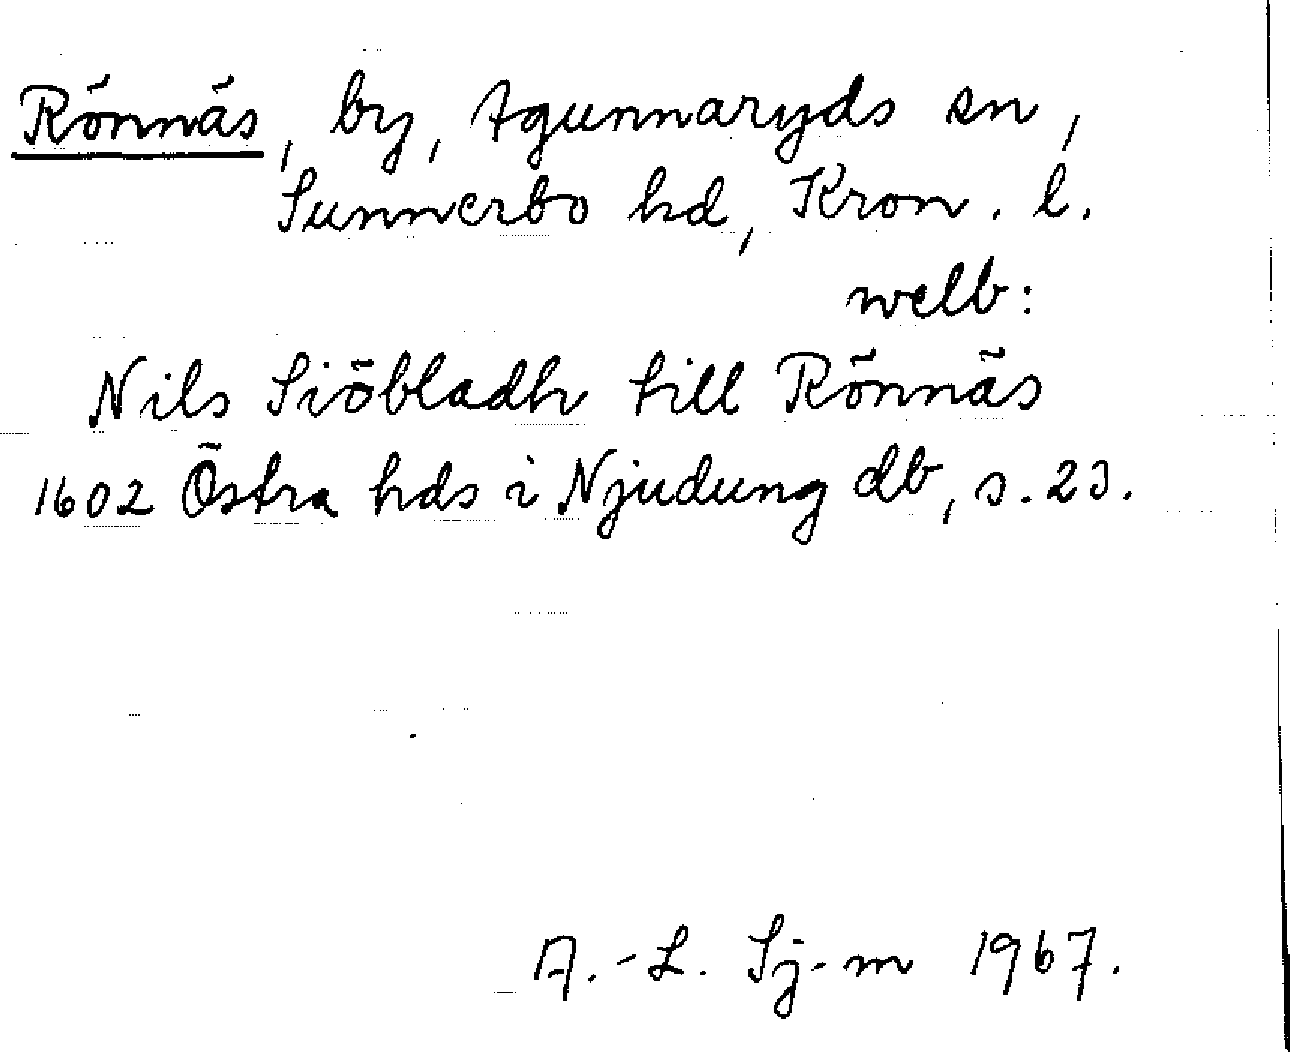 Rönnäs, by, Agunnaryds sn,
Sunnerbo hd, Kron. l.
welb:
Nils Siöbladh till Rönnäs
1602 Östra hds i Njudung db, s. 23.
A.-L. Sj-m 1967.